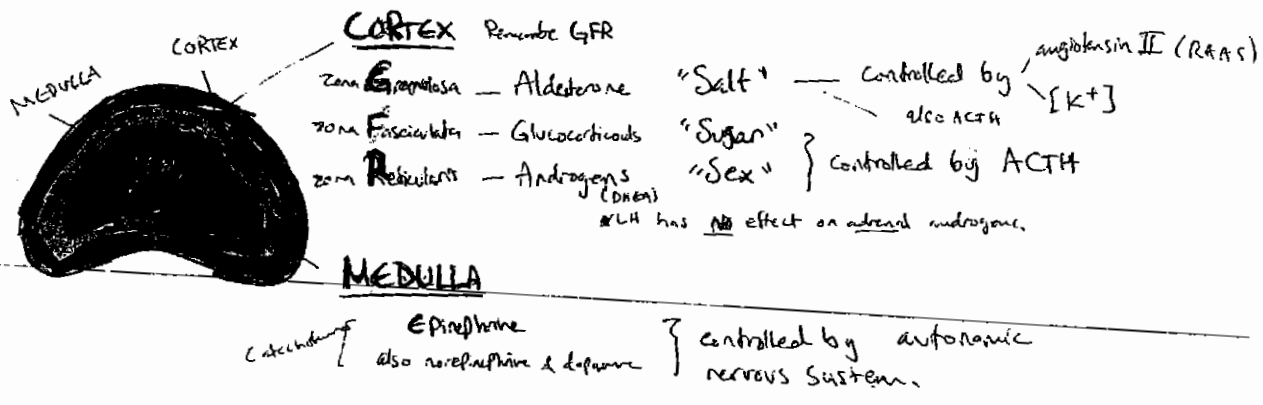 CORTEX
MEDULLA
CORTEX Remembe GFR
zona Glomerulosa — Aldosterone "Salt" — controlled by angiotensin II (RAAS)
[K+]
also ACTH
zona Fasciculata — Glucocorticoids "Sugar"
zona Reticularis — Androgens "Sex" } controlled by ACTH
(DHEA)
*LH has no effect on adrenal androgens.
MEDULLA
Epinephrine
also norepinephrine & dopamine } controlled by autonomic
nervous system.